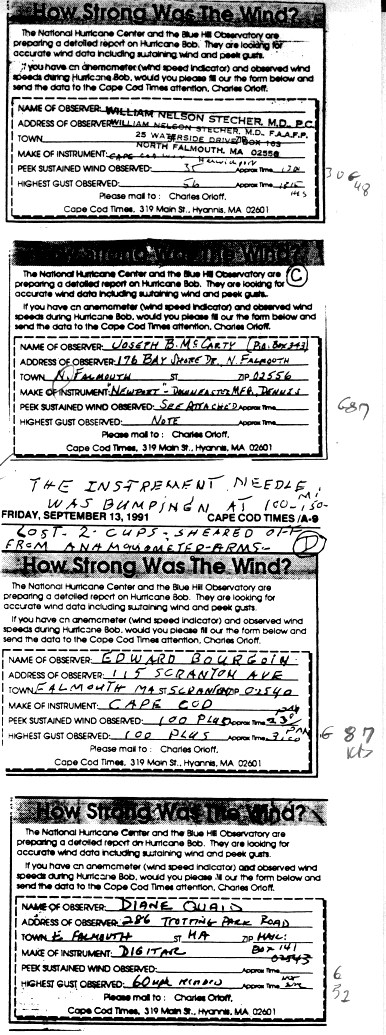 How Strong Was The Wind?
The National Hurricane Center and the Blue Hill Observatory are
preparing a detailed report on Hurricane Bob. They are looking for
accurate wind data including sustaining wind and peek gusts.
If you have an anemometer (wind speed indicator) and observed wind
speeds during Hurricane Bob, would you please fill our the form below and
send the data to the Cape Cod Times attention, Charles Orloff.
NAME OF OBSERVER: WILLIAM NELSON STECHER, M.D., P.C.
ADDRESS OF OBSERVER: WILLIAM NELSON STECHER, M.D. F.A.A.F.P.
TOWN 25 WATERSIDE DRIVE BOX 163
NORTH FALMOUTH, MA 02556
MAKE OF INSTRUMENT: CAPE COD
PEEK SUSTAINED WIND OBSERVED: 35 Approx Time
HIGHEST GUST OBSERVED: 56 Approx Time 1815
Please mail to: Charles Orloff.
Cape Cod Times, 319 Main St., Hyannis, MA 02601
48
How Strong Was The Wind?
The National Hurricane Center and the Blue Hill Observatory are
C
preparing a detailed report on Hurricane Bob. They are looking for
accurate wind data including sustaining wind and peek gusts.
If you have an anemometer (wind speed indicator) and observed wind
speeds during Hurricane Bob, would you please fill our the form below and
send the data to the Cape Cod Times attention, Charles Orloff.
NAME OF OBSERVER: JOSEPH B. McCARTY (P.O. Box 343)
ADDRESS OF OBSERVER: 176 BAY SHORE DR, N. FALMOUTH
TOWN N. FALMOUTH ST ZIP 02556
MAKE OF INSTRUMENT: "NEWPORT" - DOWNEASTER MFG. DENNIS
PEEK SUSTAINED WIND OBSERVED: SEE ATTACHED Approx Time
HIGHEST GUST OBSERVED: NOTE Approx Time
Please mail to: Charles Orloff.
Cape Cod Times, 319 Main St., Hyannis, MA 02601
G87
THE INSTREMENT NEEDLE
WAS BUMPING AT 100-150- MI
FRIDAY, SEPTEMBER 13, 1991 CAPE COD TIMES /A-9
LOST-2-CUPS-SHEARED OFF
FROM ANAMOUOMETED-ARMS- D
How Strong Was The Wind?
The National Hurricane Center and the Blue Hill Observatory are
preparing a detailed report on Hurricane Bob. They are looking for
accurate wind data including sustaining wind and peek gusts.
If you have an anemometer (wind speed indicator) and observed wind
speeds during Hurricane Bob, would you please fill our the form below and
send the data to the Cape Cod Times attention, Charles Orloff.
NAME OF OBSERVER: EDWARD BOURGOIN
ADDRESS OF OBSERVER: 115 SCRANTON AVE
TOWN FALMOUTH MA ST SCRANTON ZIP 02540
MAKE OF INSTRUMENT: CAPE COD
PEEK SUSTAINED WIND OBSERVED: 100 PLUS Approx Time 230 PM
HIGHEST GUST OBSERVED: 100 PLUS Approx Time 3:00 PM
Please mail to: Charles Orloff.
Cape Cod Times, 319 Main St., Hyannis, MA 02601
G 87
kts
How Strong Was The Wind?
The National Hurricane Center and the Blue Hill Observatory are
preparing a detailed report on Hurricane Bob. They are looking for
accurate wind data including sustaining wind and peek gusts.
If you have an anemometer (wind speed indicator) and observed wind
speeds during Hurricane Bob, would you please fill our the form below and
send the data to the Cape Cod Times attention, Charles Orloff.
NAME OF OBSERVER: DIANE QUAID
ADDRESS OF OBSERVER: 286 TROTTING PARK ROAD
TOWN E. FALMOUTH ST MA ZIP MAIL:
BOX 141
MAKE OF INSTRUMENT: DIGITAR 02543
PEEK SUSTAINED WIND OBSERVED: Approx Time
HIGHEST GUST OBSERVED: 60 mph Approx Time
Please mail to: Charles Orloff.
Cape Cod Times, 319 Main St., Hyannis, MA 02601
G
52